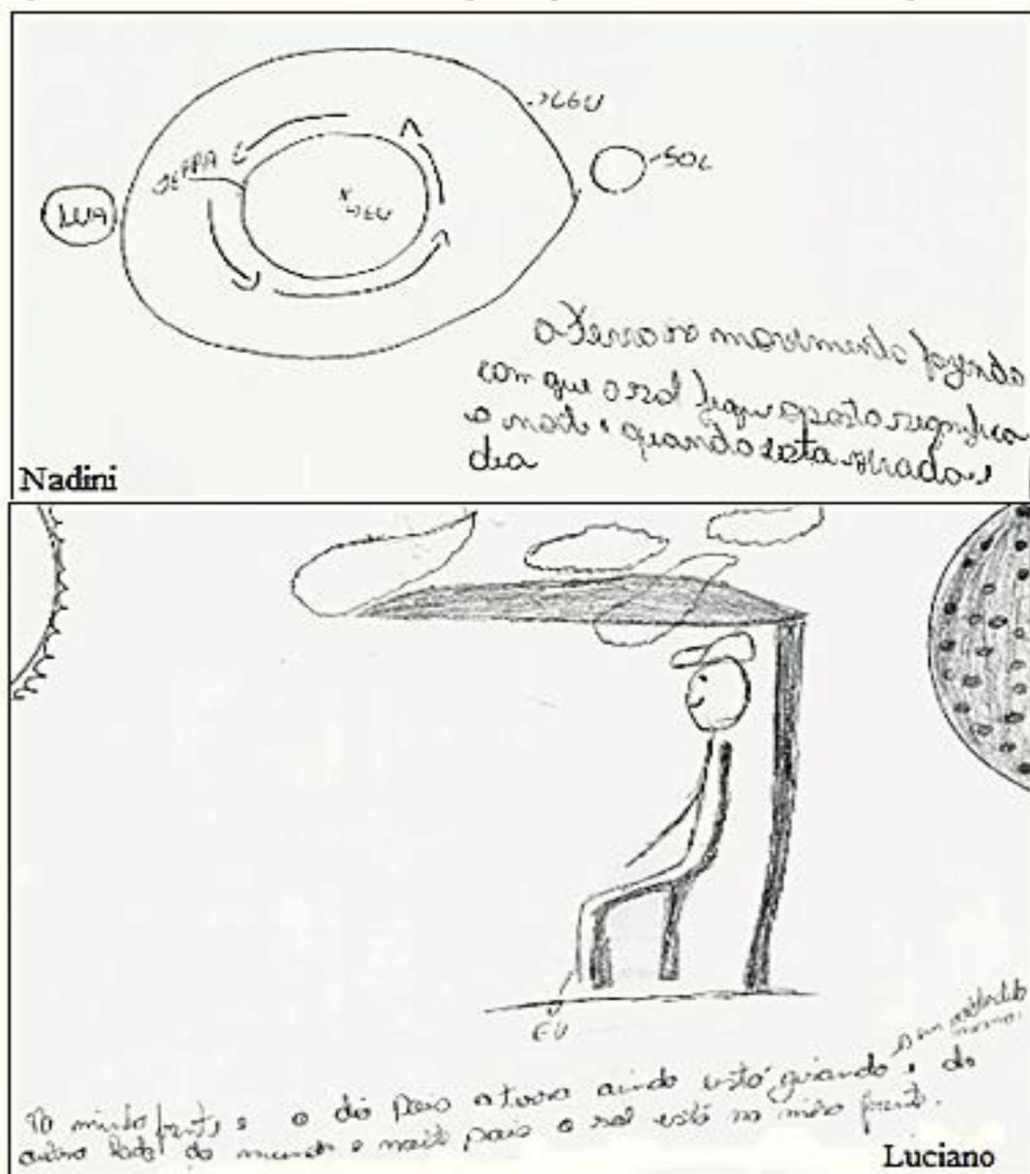 CEU
SOL
TERRA
LUA
EU
a Terra o movimento fazendo
com que o sol fique oposto significa
a noite e quando esta virado e
dia
Nadini
EU
Na minha frente e o dia pois a terra ainda está girando, do
outro lado do mundo e noite pois o sol está na minha frente.
Luciano